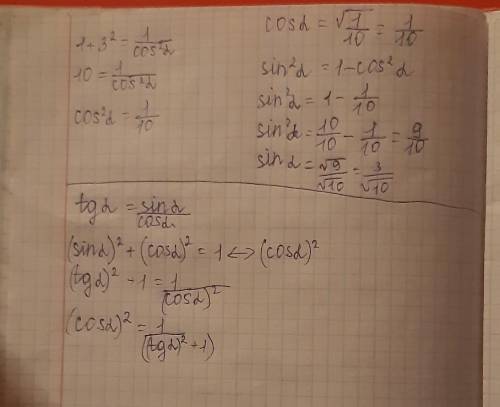 1+3² = 1/cos²α
10 = 1/cos²α
cos²α = 1/10
cosα = √1/10 = 1/10
sin²α = 1-cos²α
sin²α = 1 - 1/10
sin²α = 10/10 - 1/10 = 9/10
sinα = √9/√10 = 3/√10
tgα = sinα/cosα
(sinα)² + (cosα)² = 1 <-> (cosα)²
(tgα)² - 1 = 1/(cosα)²
(cosα)² = 1/((tgα)² + 1)